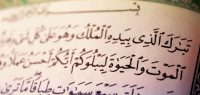 تَبَٰرَكَ ٱلَّذِى بِيَدِهِ ٱلْمُلْكُ وَهُوَ عَلَىٰ كُلِّ
ٱلْمَوْتَ وَٱلْحَيَوٰةَ لِيَبْلُوَكُمْ أَيُّكُمْ أَحْسَنُ عَمَلًا
سَبْعَ سَمَٰوَٰتٍ طِبَاقًا مَّا تَرَىٰ